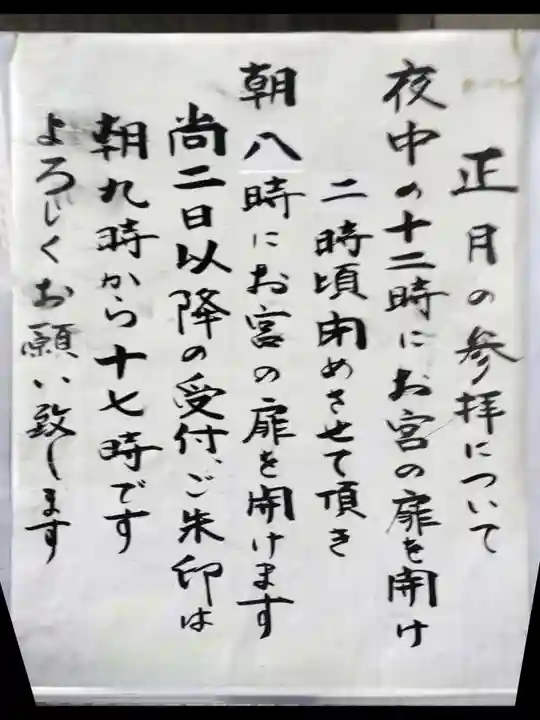 正月の参拝について
夜中の十二時にお宮の扉を開け
二時頃閉めさせて頂き
朝八時にお宮の扉を開けます
尚二日以降の受付、ご朱印は
朝九時から十七時です
よろしくお願い致します